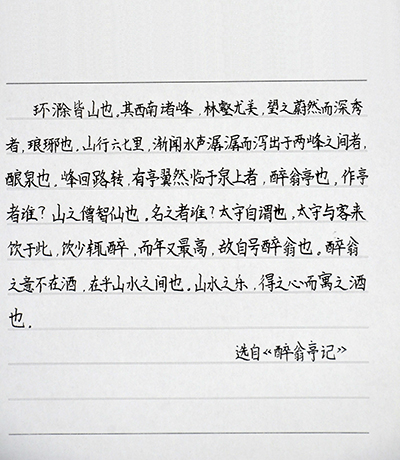 环滁皆山也.其西南诸峰,林壑尤美,望之蔚然而深秀
者,琅琊也.山行六七里,渐闻水声潺潺而泻出于两峰之间者,
酿泉也.峰回路转,有亭翼然临于泉上者,醉翁亭也,作亭
者谁?山之僧智仙也.名之者谁?太守自谓也,太守与客来
饮于此,饮少辄醉,而年又最高,故自号醉翁也.醉翁
之意不在酒,在乎山水之间也.山水之乐,得之心而寓之酒
也.
选自《醉翁亭记》